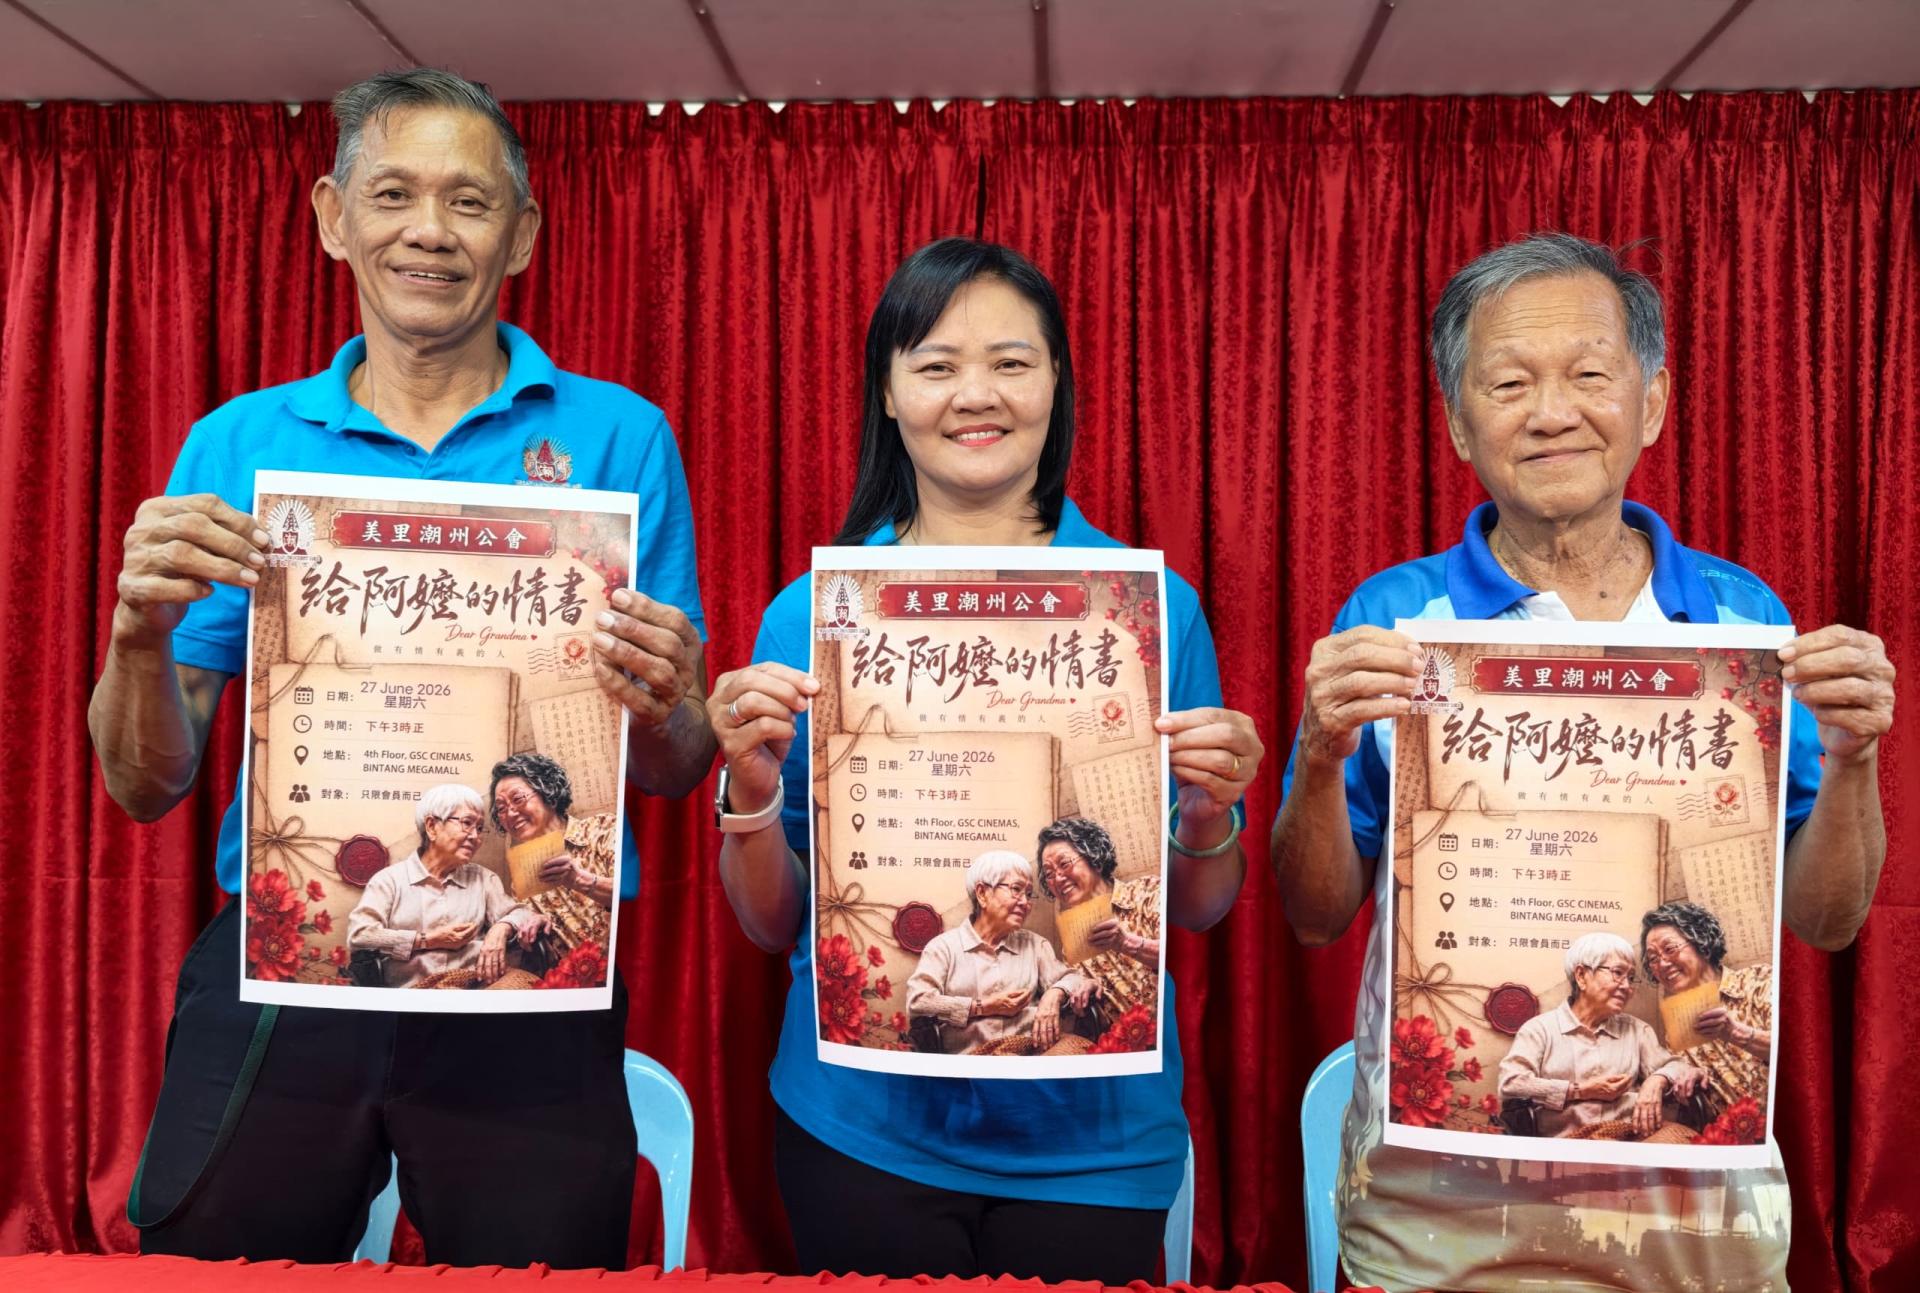 美里潮州公會
給阿嬤的情書
Dear Grandma
做有情有義的人
日期: 27 June 2026
星期六
時間: 下午3時正
地點: 4th Floor, GSC CINEMAS,
BINTANG MEGAMALL
對象: 只限會員而已
潮
美里潮州公會
給阿嬤的情書
Dear Grandma
做有情有義的人
日期: 27 June 2026
星期六
時間: 下午3時正
地點: 4th Floor, GSC CINEMAS,
BINTANG MEGAMALL
對象: 只限會員而已
美里潮州公會
給阿嬤的情書
Dear Grandma
做有情有義的人
日期: 27 June 2026
星期六
時間: 下午3時正
地點: 4th Floor, GSC CINEMAS,
BINTANG MEGAMALL
對象: 只限會員而已